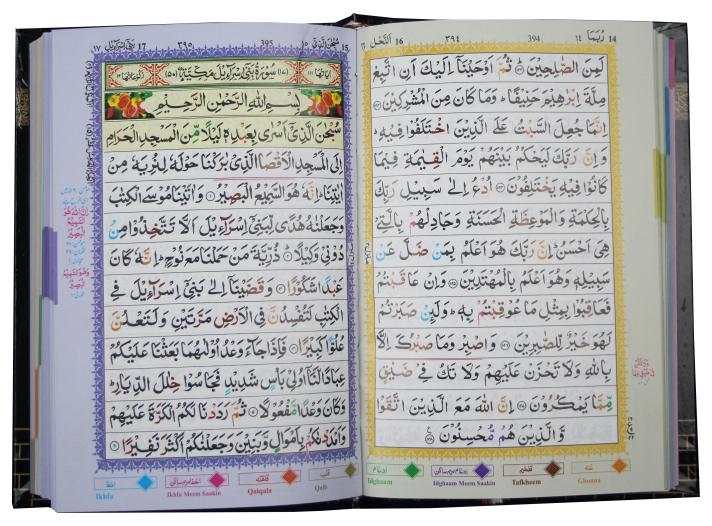 رُبَمَا ١٤ 14
394 ٣٩٤
اَلنَّحْل ١٦ 16
لَمِنَ الصّٰلِحِيْنَ ثُمَّ اَوْحَيْنَاۤ اِلَيْكَ اَنِ اتَّبِعْ
مِلَّةَ اِبْرٰهِيْمَ حَنِيْفًا وَمَا كَانَ مِنَ الْمُشْرِكِيْنَ
اِنَّمَا جُعِلَ السَّبْتُ عَلَى الَّذِيْنَ اخْتَلَفُوْا فِيْهِ
وَاِنَّ رَبَّكَ لَيَحْكُمُ بَيْنَهُمْ يَوْمَ الْقِيٰمَةِ فِيْمَا
كَانُوْا فِيْهِ يَخْتَلِفُوْنَ اُدْعُ اِلٰى سَبِيْلِ رَبِّكَ
بِالْحِكْمَةِ وَالْمَوْعِظَةِ الْحَسَنَةِ وَجَادِلْهُمْ بِالَّتِيْ
هِيَ اَحْسَنُ اِنَّ رَبَّكَ هُوَ اَعْلَمُ بِمَنْ ضَلَّ عَنْ
سَبِيْلِهٖ وَهُوَ اَعْلَمُ بِالْمُهْتَدِيْنَ وَاِنْ عَاقَبْتُمْ
فَعَاقِبُوْا بِمِثْلِ مَا عُوْقِبْتُمْ بِهٖ وَلَئِنْ صَبَرْتُمْ
لَهُوَ خَيْرٌ لِّلصّٰبِرِيْنَ وَاصْبِرْ وَمَا صَبْرُكَ اِلَّا
بِاللّٰهِ وَلَا تَحْزَنْ عَلَيْهِمْ وَلَا تَكُ فِيْ ضَيْقٍ
مِّمَّا يَمْكُرُوْنَ اِنَّ اللّٰهَ مَعَ الَّذِيْنَ اتَّقَوْا
وَّالَّذِيْنَ هُمْ مُّحْسِنُوْنَ
Ghunna
Tafkheem
Idghaam Meem Saakin
Idghaam
سُبْحٰنَ الَّذِيْ ١٥ 15
395 ٣٩٥
بَنِيْ اِسْرَآءِيْل ١٧ 17
(١٧) سُوْرَةُ بَنِيْ اِسْرَآءِيْلَ مَكِّيَّةٌ (٥٠)
بِسْمِ اللّٰهِ الرَّحْمٰنِ الرَّحِيْمِ
سُبْحٰنَ الَّذِيْۤ اَسْرٰى بِعَبْدِهٖ لَيْلًا مِّنَ الْمَسْجِدِ الْحَرَامِ
اِلَى الْمَسْجِدِ الْاَقْصَا الَّذِيْ بٰرَكْنَا حَوْلَهٗ لِنُرِيَهٗ مِنْ
اٰيٰتِنَا اِنَّهٗ هُوَ السَّمِيْعُ الْبَصِيْرُ وَاٰتَيْنَا مُوْسَى الْكِتٰبَ
وَجَعَلْنٰهُ هُدًى لِّبَنِيْۤ اِسْرَآءِيْلَ اَلَّا تَتَّخِذُوْا مِنْ
دُوْنِيْ وَكِيْلًا ذُرِّيَّةَ مَنْ حَمَلْنَا مَعَ نُوْحٍ اِنَّهٗ كَانَ
عَبْدًا شَكُوْرًا وَقَضَيْنَاۤ اِلٰى بَنِيْۤ اِسْرَآءِيْلَ فِي
الْكِتٰبِ لَتُفْسِدُنَّ فِي الْاَرْضِ مَرَّتَيْنِ وَلَتَعْلُنَّ
عُلُوًّا كَبِيْرًا فَاِذَا جَآءَ وَعْدُ اُوْلٰىهُمَا بَعَثْنَا عَلَيْكُمْ
عِبَادًا لَّنَاۤ اُولِيْ بَاْسٍ شَدِيْدٍ فَجَاسُوْا خِلٰلَ الدِّيَارِ
وَكَانَ وَعْدًا مَّفْعُوْلًا ثُمَّ رَدَدْنَا لَكُمُ الْكَرَّةَ عَلَيْهِمْ
وَاَمْدَدْنٰكُمْ بِاَمْوَالٍ وَّبَنِيْنَ وَجَعَلْنٰكُمْ اَكْثَرَ نَفِيْرًا
Qalb
Qalqala
Ikhfa Meem Saakin
Ikhfa